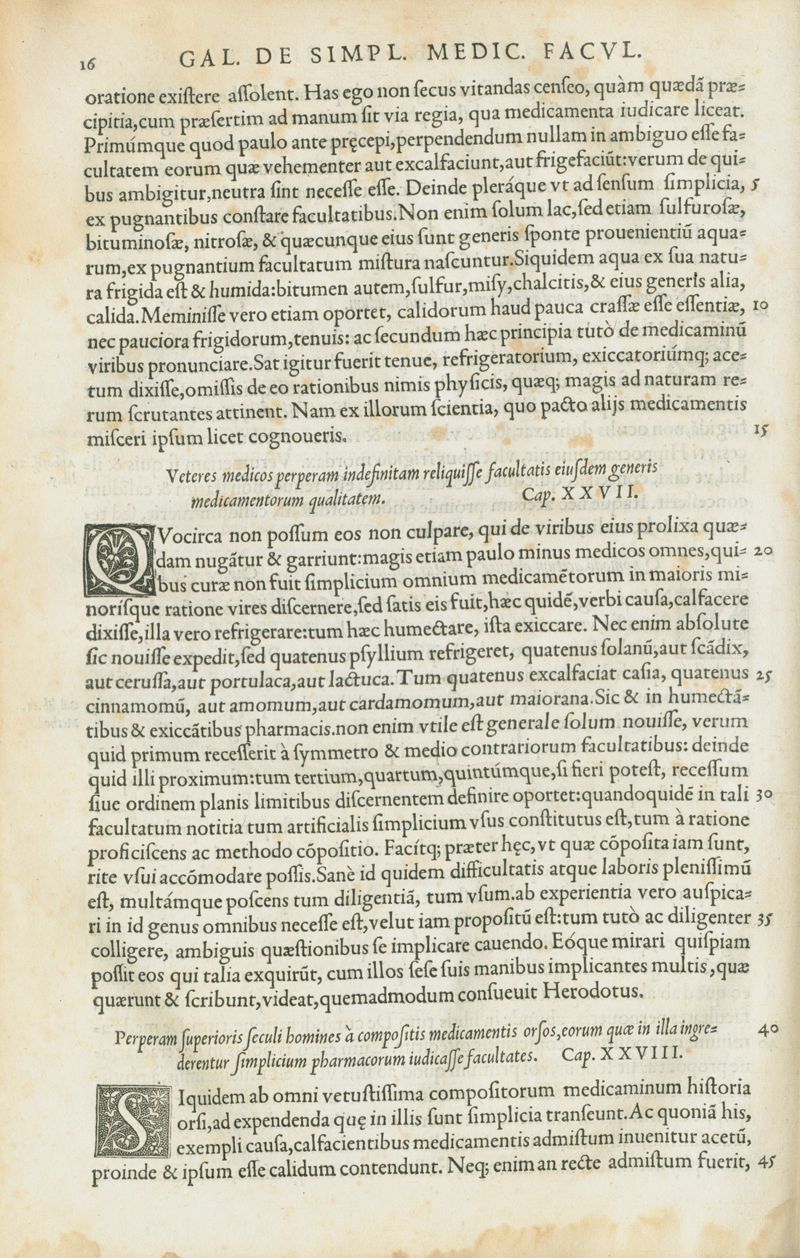 16 GAL. DE SIMPL. MEDIC. FACVL.
oratione exiſtere aſſolent. Has ego non ſecus vitandas cenſeo, quàm quædā præ-
cipitia,cum præſertim ad manum ſit via regia, qua medicamenta iudicare liceat.
Primúmque quod paulo ante pręcepi,perpendendum nullam in ambiguo eſſe fa-
cultatem eorum quæ vehementer aut excalfaciunt,aut frigefaciūt:verum de qui-
bus ambigitur,neutra ſint neceſſe eſſe. Deinde pleráque vt ad ſenſum ſimplicia, 5
ex pugnantibus conſtare facultatibus.Non enim ſolum lac,ſed etiam ſulfuroſæ,
bituminoſæ, nitroſæ, & quæcunque eius ſunt generis ſponte prouenientiū aqua-
rum,ex pugnantium facultatum miſtura naſcuntur.Siquidem aqua ex ſua natu-
ra frigida eſt & humida:bitumen autem,ſulfur,miſy,chalcitis,& eius generis alia,
calida.Meminiſſe vero etiam oportet, calidorum haud pauca craſſæ eſſe eſſentiæ, 10
nec pauciora frigidorum,tenuis: ac ſecundum hæc principia tutò de medicaminū
viribus pronunciare.Sat igitur fuerit tenue, refrigeratorium, exiccatoriúmq; ace-
tum dixiſſe,omiſſis de eo rationibus nimis phyſicis, quæq; magis ad naturam re-
rum ſcrutantes attinent. Nam ex illorum ſcientia, quo pacto alijs medicamentis
miſceri ipſum licet cognoueris. 15
Veteres medicos perperam indefinitam reliquiſſe facultatis eiuſdem generis
medicamentorum qualitatem. Cap. XXVII.
QVocirca non poſſum eos non culpare, qui de viribus eius prolixa quæ-
dam nugātur & garriunt:magis etiam paulo minus medicos omnes,qui- 20
bus curæ non fuit ſimplicium omnium medicamētorum in maioris mi-
noriſque ratione vires diſcernere,ſed ſatis eis fuit,hæc quidē,verbi cauſa,calfacere
dixiſſe,illa vero refrigerare:tum hæc humectare, iſta exiccare. Nec enim abſolute
ſic nouiſſe expedit,ſed quatenus pſyllium refrigeret, quatenus ſolanū,aut ſcādix,
aut ceruſſa,aut portulaca,aut lactuca.Tum quatenus excalfaciat caſia, quatenus 25
cinnamomū, aut amomum,aut cardamomum,aut maiorana.Sic & in humectā-
tibus & exiccātibus pharmacis.non enim vtile eſt generale ſolum nouiſſe, verum
quid primum receſſerit à ſymmetro & medio contrariorum facultatibus: deinde
quid illi proximum:tum tertium,quartum,quintúmque,ſi fieri poteſt, receſſum
ſiue ordinem planis limitibus diſcernentem definire oportet:quandoquidē in tali 30
facultatum notitia tum artificialis ſimplicium vſus conſtitutus eſt,tum à ratione
proficiſcens ac methodo cōpoſitio. Facítq; præter hęc,vt quæ cōpoſita iam ſunt,
rite vſui accōmodare poſſis.Sanè id quidem difficultatis atque laboris pleniſſimū
eſt, multámque poſcens tum diligentiā, tum vſum.ab experientia vero auſpica-
ri in id genus omnibus neceſſe eſt,velut iam propoſitū eſt:tum tutò ac diligenter 35
colligere, ambiguis quæſtionibus ſe implicare cauendo. Eóque mirari quiſpiam
poſſit eos qui talia exquirūt, cum illos ſeſe ſuis manibus implicantes multis,quæ
quærunt & ſcribunt,videat,quemadmodum conſueuit Herodotus.
Perperam ſuperioris ſeculi homines à compoſitis medicamentis orſos,eorum quæ in illa ingre- 40
derentur ſimplicium pharmacorum iudicaſſe facultates. Cap. XXVIII.
SIquidem ab omni vetuſtiſſima compoſitorum medicaminum hiſtoria
orſi,ad expendenda quę in illis ſunt ſimplicia tranſeunt.Ac quoniā his,
exempli cauſa,calfacientibus medicamentis admiſtum inuenitur acetū,
proinde & ipſum eſſe calidum contendunt. Neq; enim an recte admiſtum fuerit, 45